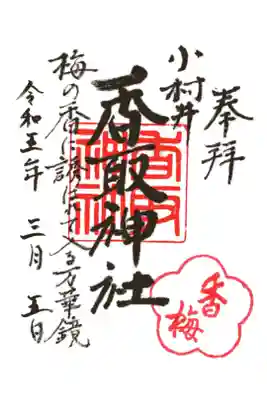 奉拝
小村井
香取神社
梅の香に誘はれて入る万華鏡
令和五年 三月 五日
香梅